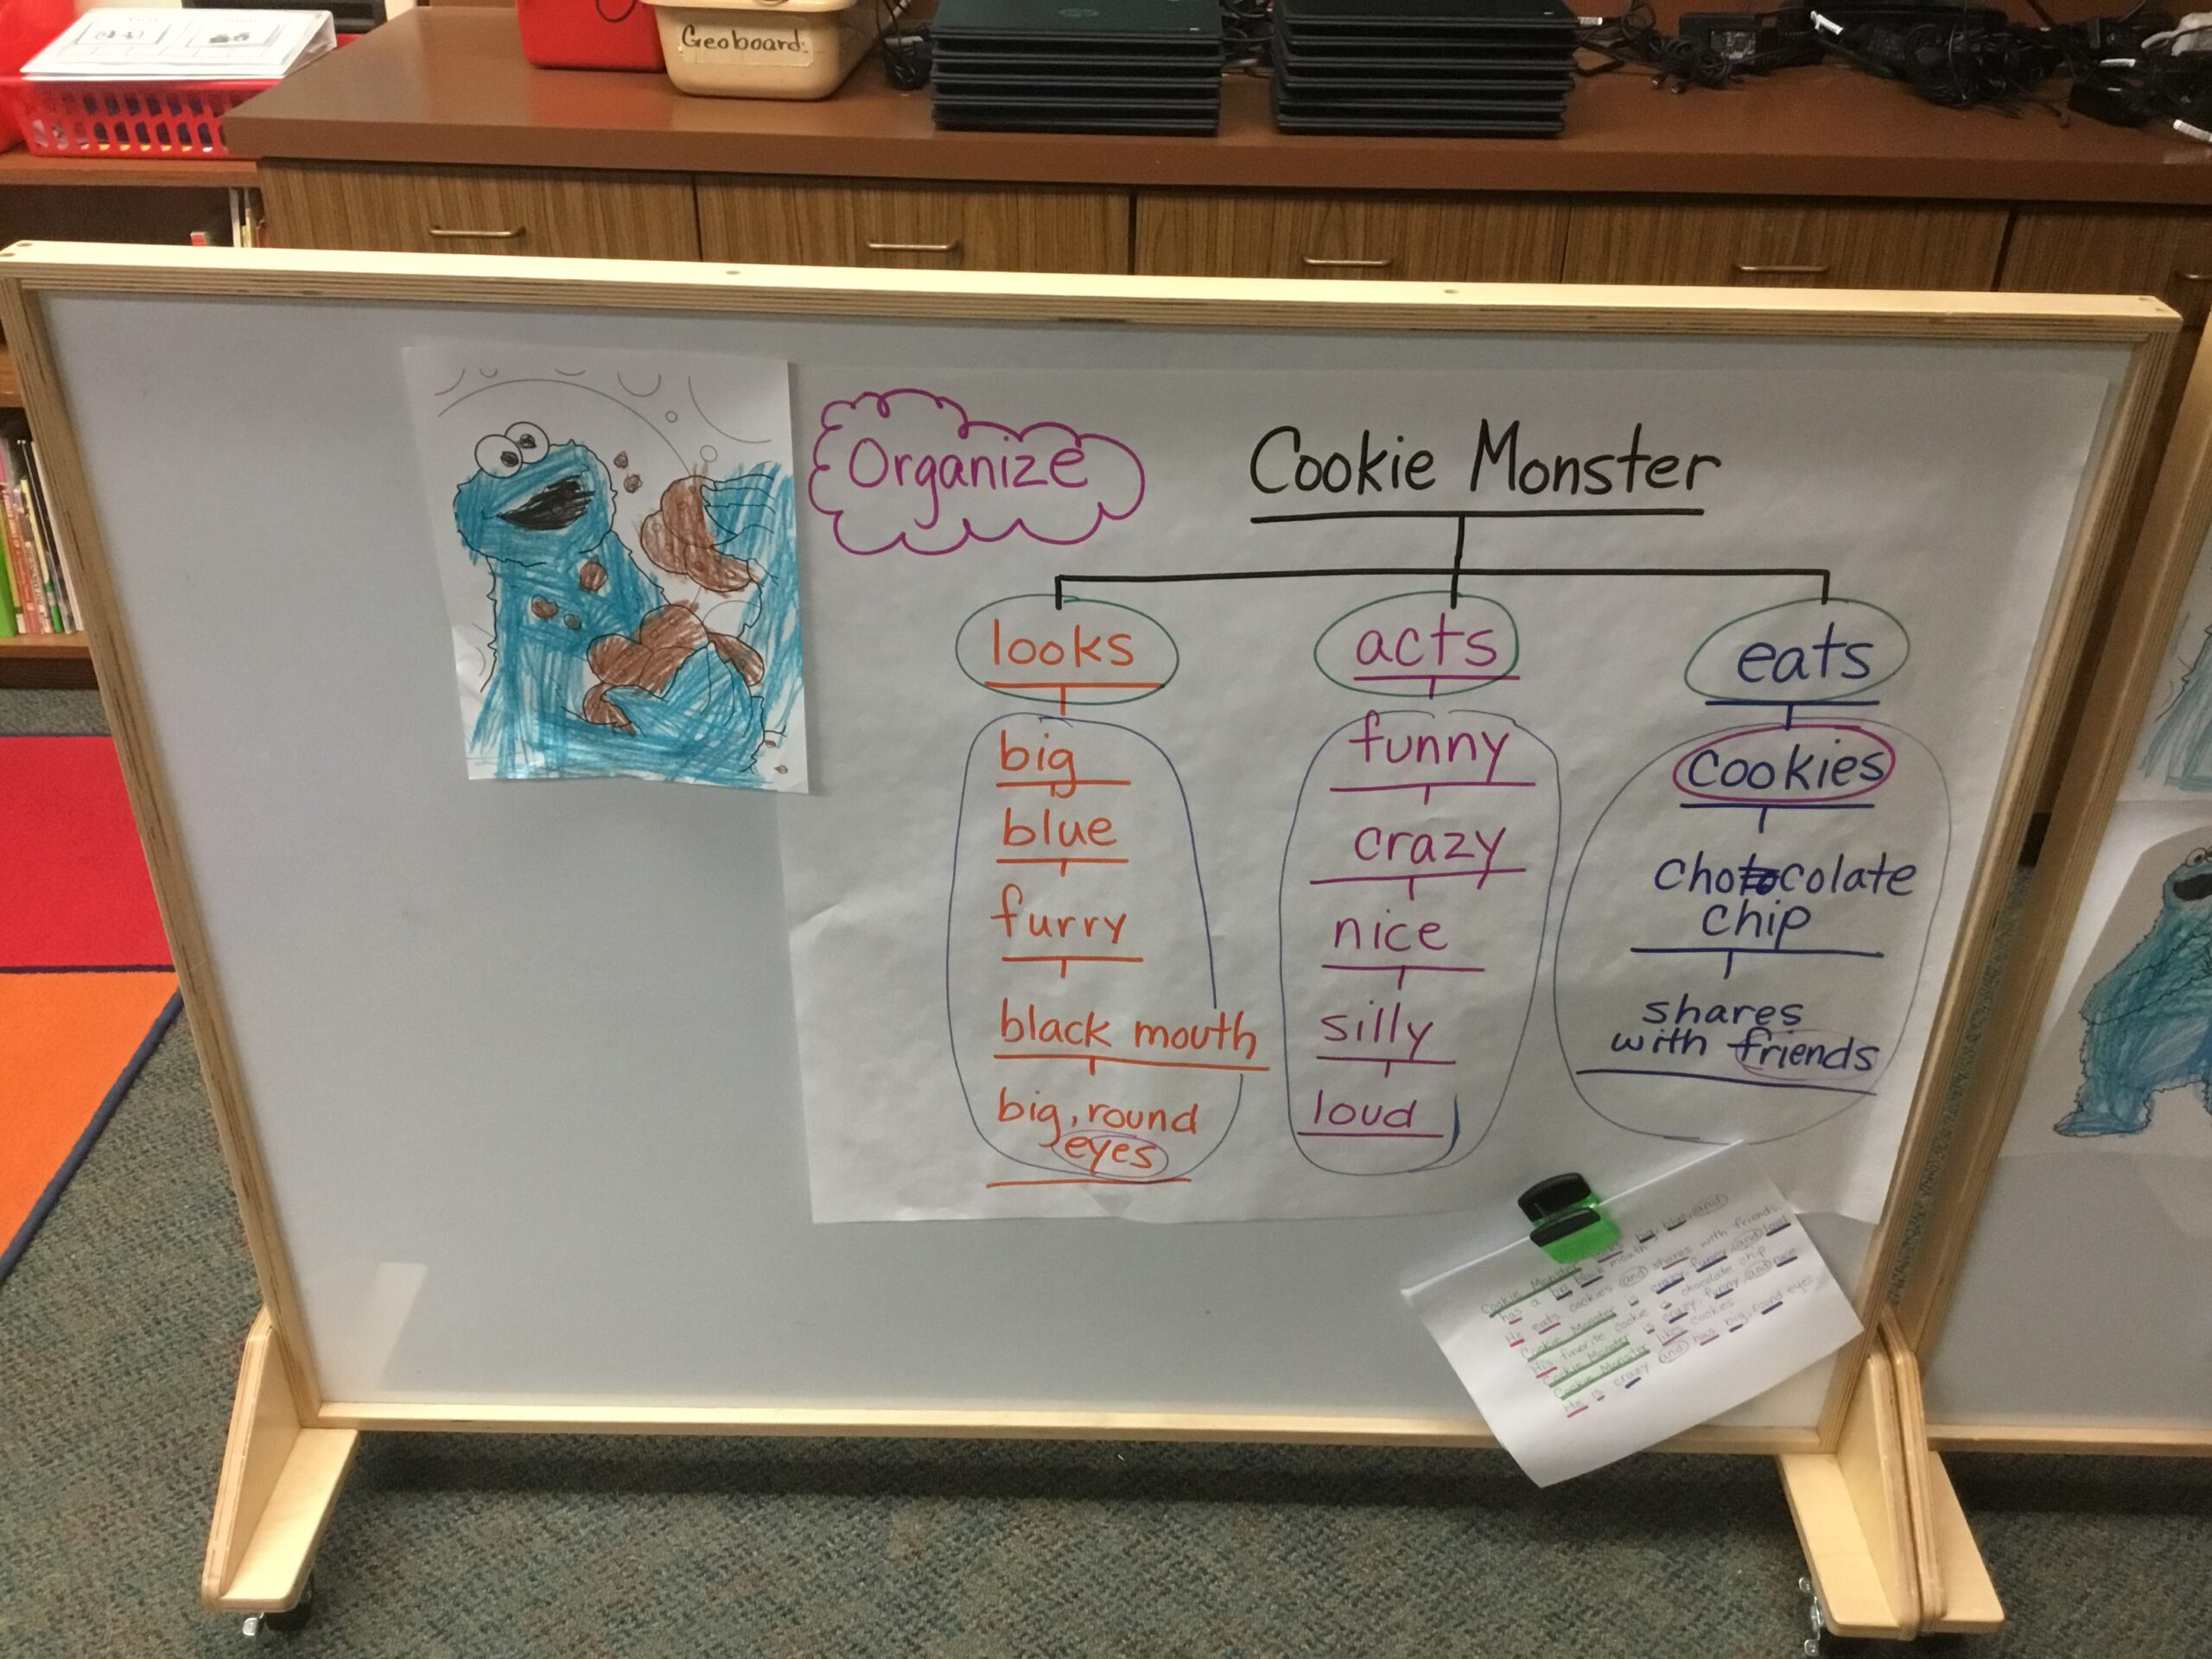 Geoboard
Organize
Cookie Monster
looks
big
blue
furry
black mouth
big, round
eyes
acts
funny
crazy
nice
silly
loud
eats
cookies
chocolate
chip
shares
with friends
Cookie Monster looks big, blue, and
has a big black mouth
He eats cookies and shares with friends
Cookie Monster is crazy, funny and loud
His favorite cookie is chocolate chip
Cookie Monster is crazy, funny, and nice
Cookie Monster likes cookies
He is crazy and has big, round eyes